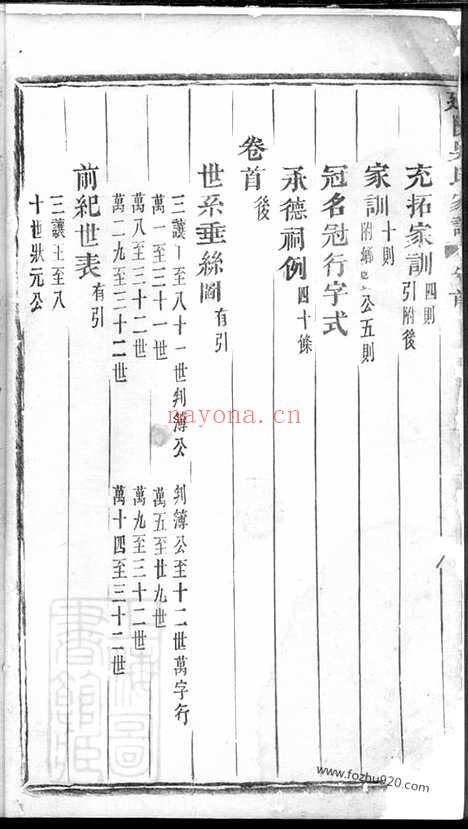 充拓家訓四則引附後
家訓十則附公五則
冠名冠行字式
承德祠例四十條
卷首後
世系垂絲圖有引
三讓至八十一世判簿公 判簿公至十二世萬字行
萬一至三十一世 萬五至廿九世
萬八至三十二世 萬九至三十二世
萬二九至三十二世 萬十四至三十二世
前紀世表有引
三讓王至八
十世狀元公
nayona.cn
www.fozhu920.com